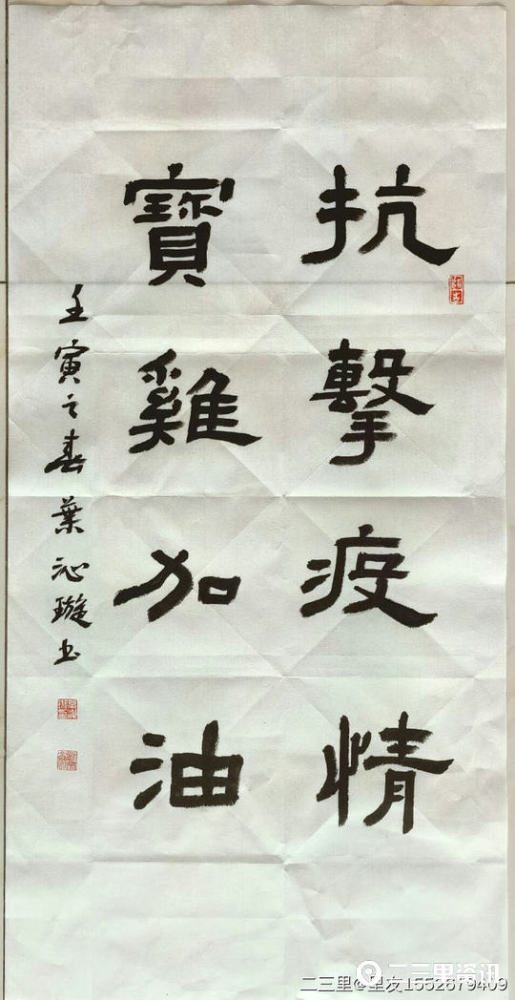 抗擊疫情
寶雞加油
壬寅之春葉沁璇书
二三里@里友1552679409
二三里资讯